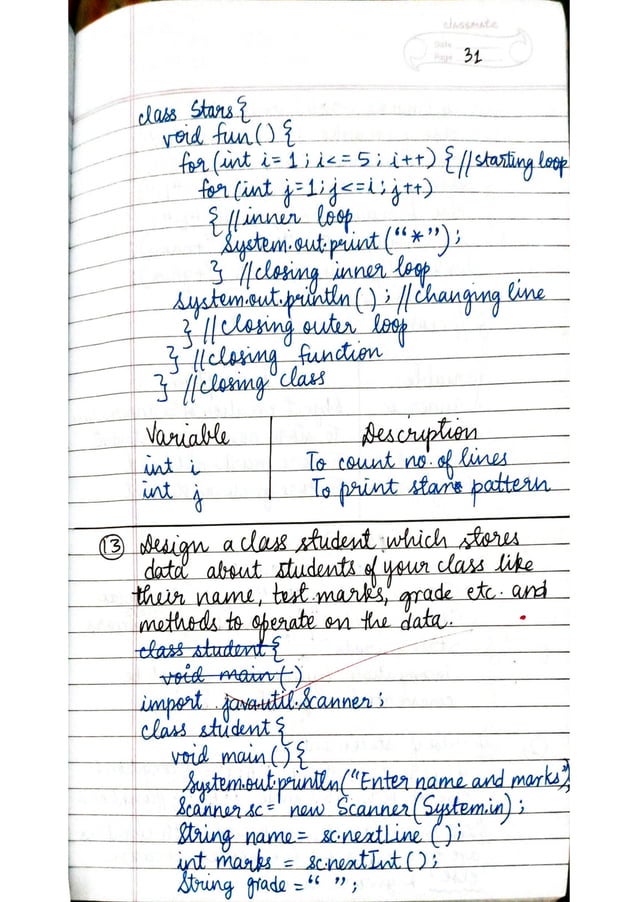 classmate
Date
Page 31
class Stars{
void fun() {
for (int i= 1 ; i<= 5 ; i++) { //starting loop
for (int j=1; j<=i; j++)
{ //inner loop
System.out.print ("*");
} //closing inner loop
System.out.println () ; //changing line
} //closing outer loop
} //closing function
} //closing class
Variable Description
int i To count no. of lines
int j To print stars pattern
13 Design a class student which stores
data about students of your class like
their name, test marks, grade etc. and
methods to operate on the data.
class student {
void main()
import java.util.Scanner ;
class student {
void main () {
System.out.println("Enter name and marks");
Scanner sc = new Scanner(System.in) ;
String name = sc.nextLine () ;
int marks = sc.nextInt () ;
String grade = " " ;